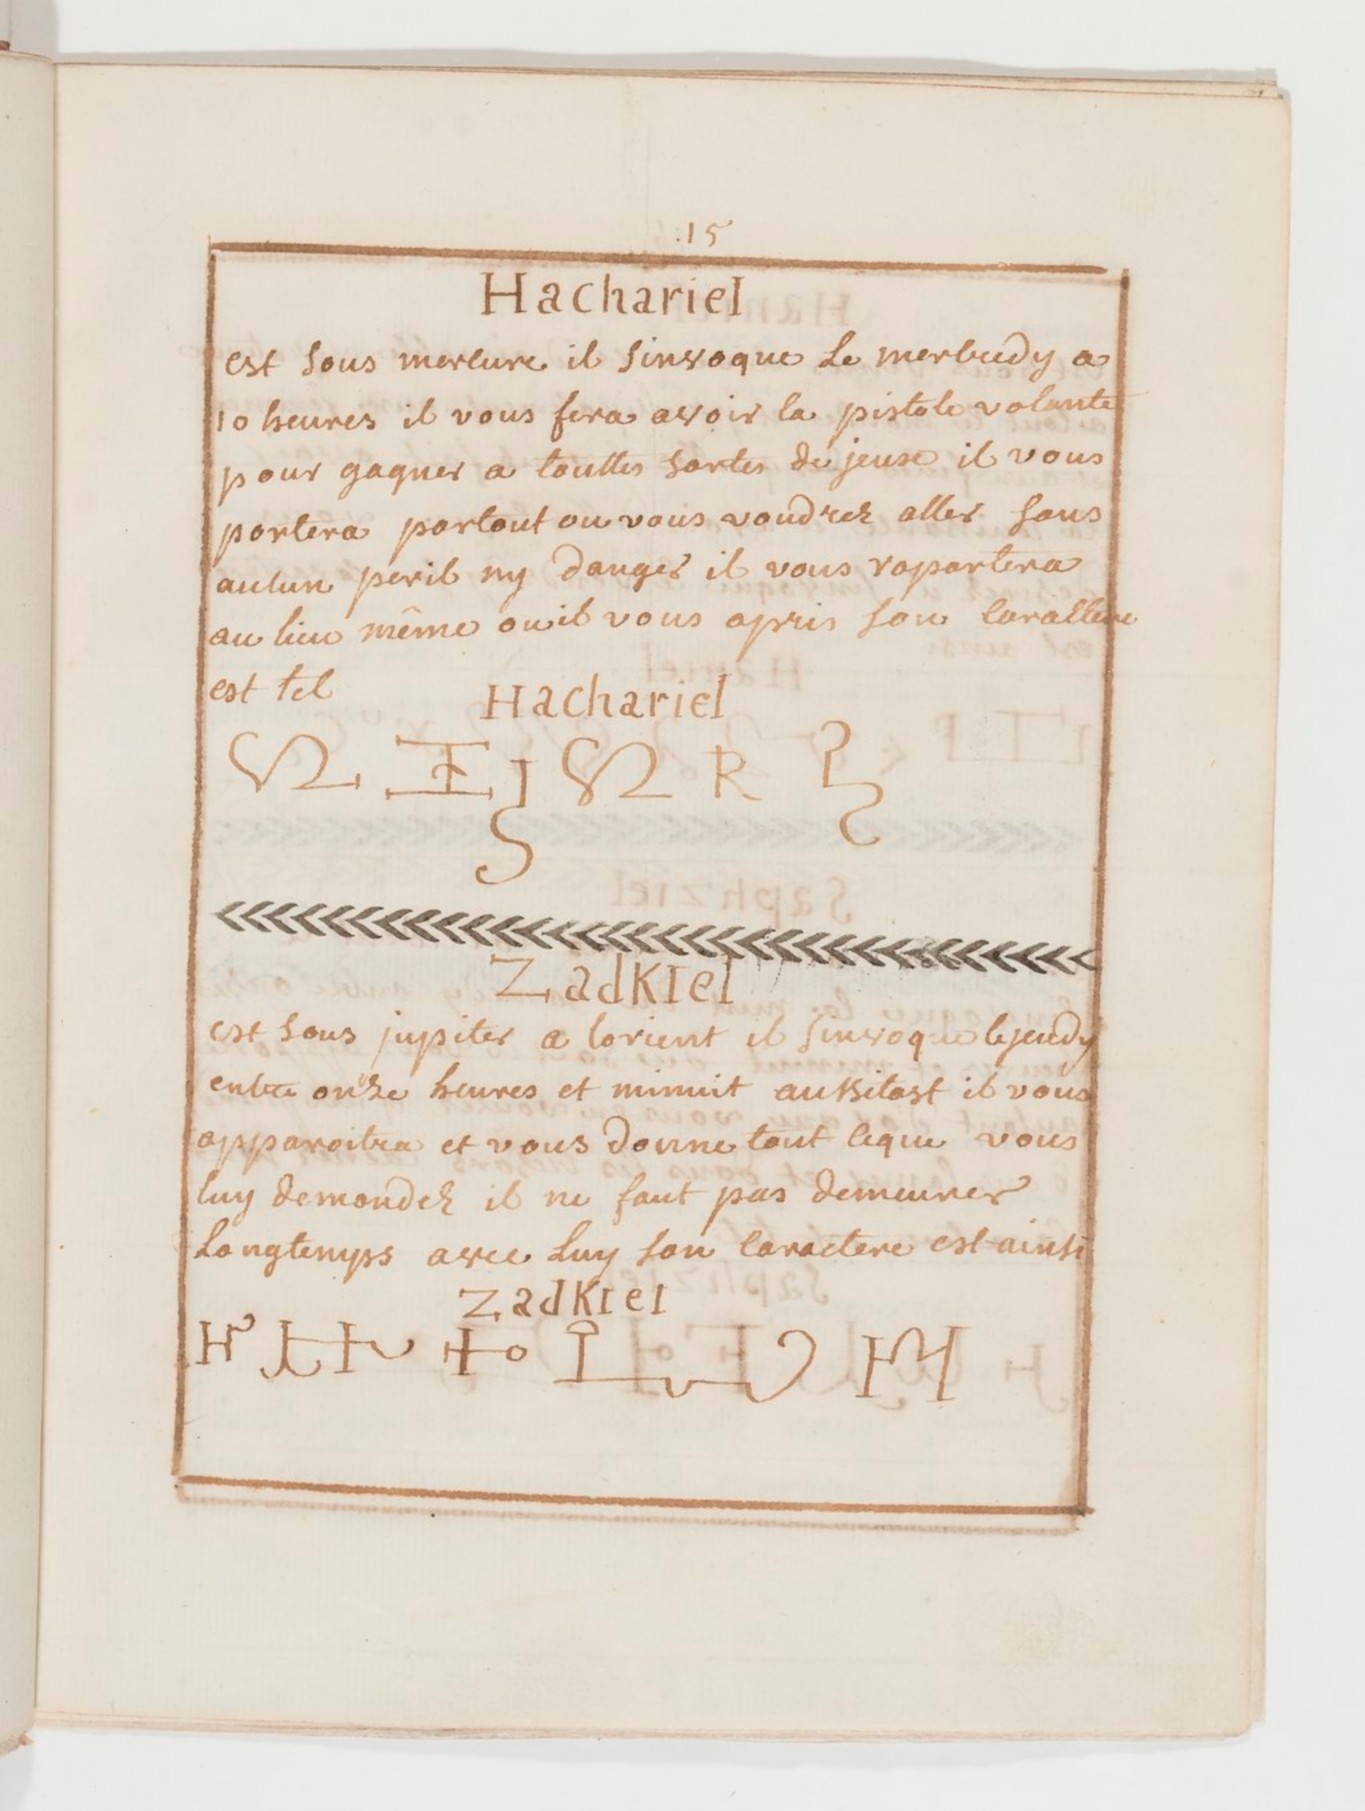 .15
Hachariel
est sous mercure il sinvoque Le mercredy a
10 heures il vous fera avoir la pistole volante
pour gagner a touttes sortes de jeux il vous
portera partout ou vous voudrez aller sans
aucun peril ny danger il vous raportera
au lieu même ou il vous apris son caractere
est tel
Hachariel
R
ZadKIel
est sous jupiter a lorient il sinvoque le jeudy
entre onze heures et minuit aussitost il vous
apparoitra et vous donne tout ceque vous
luy demandez il ne faut pas demeurer
Longtemps avec Luy son caractere est ainsi
ZadKIel